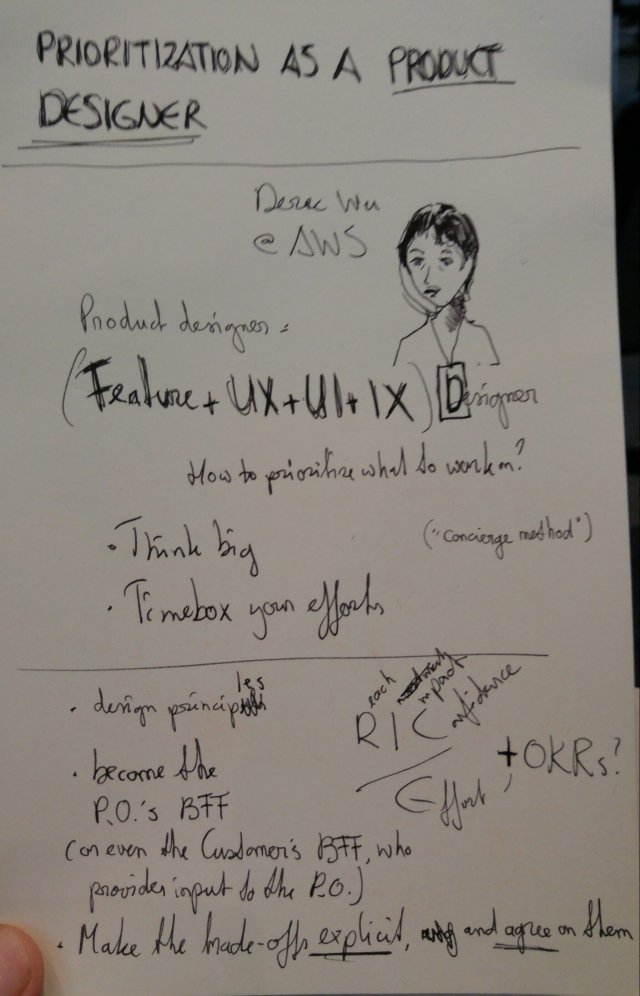 PRIORITIZATION AS A PRODUCT
DESIGNER
Derec Wu
@ AWS
Product designer =
(Feature + UX + UI + IX) Designer
How to prioritize what to work on?
• Think big
("Concierge method")
• Timebox your efforts
• design principles
Reach Impact Confidence
Effort
+ OKRs?
• become the
P.O.'s BFF
(or even the Customer's BFF, who
provides input to the P.O.)
• Make the trade-offs explicit, and agree on them